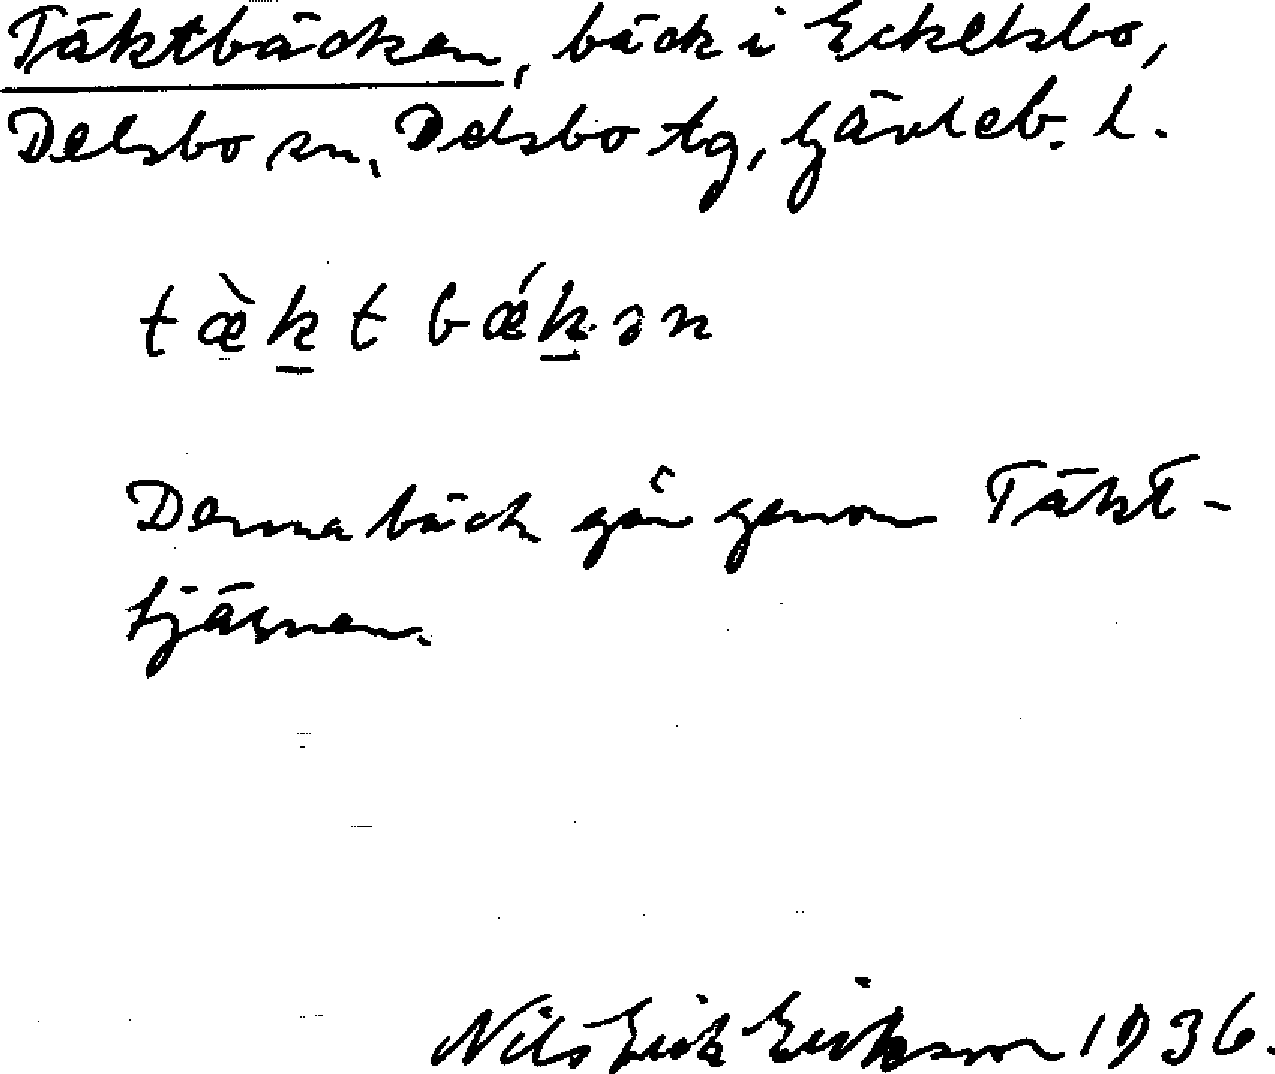 Täktbäcken, bäck i Eckelsbo,
Delsbo sn, Delsbo tg, Gävleb. l.
tæ̀k̲t bǽk̲ən
Denna bäck går genom Täkt-
tjärnen.
Nils Erik Eriksson 1936.